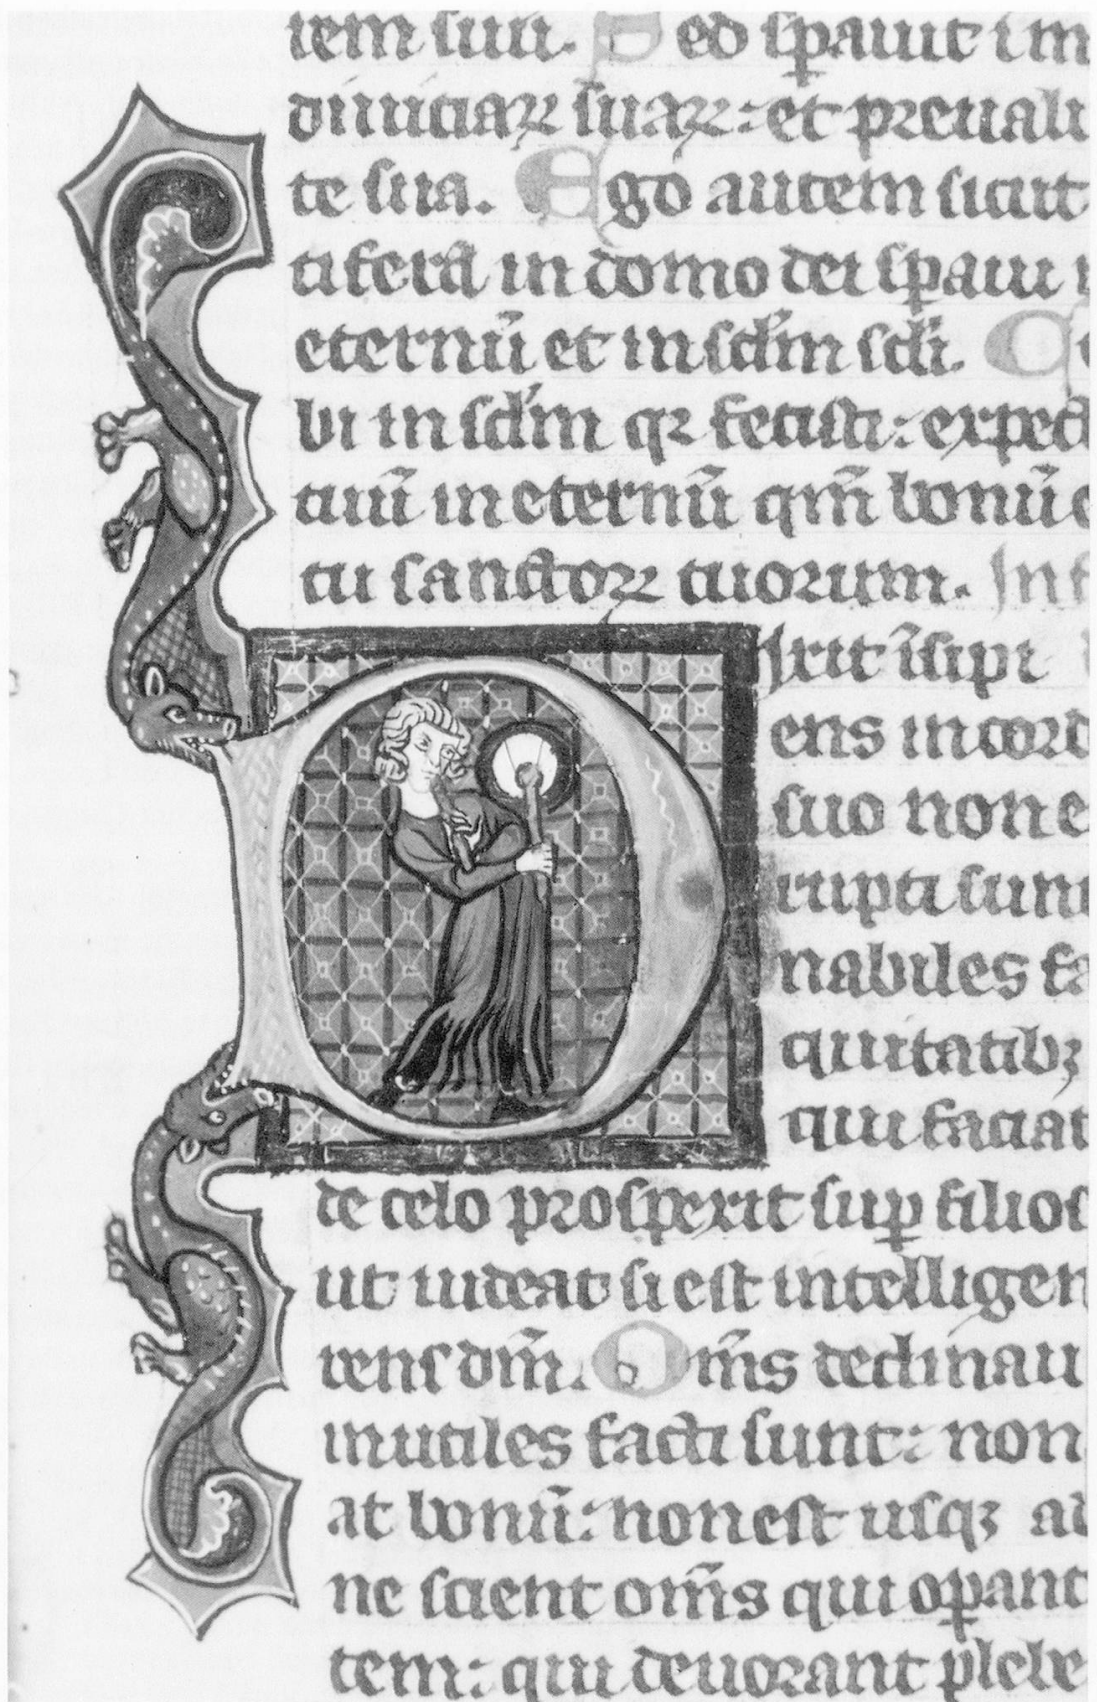 tem suu. Sed spauit in
diuiciaꝝ suaꝝ: et preualu
te sua. Ego autem sicut
tiferā in domo dei spaui
eternū et in sclm scli. C
bi in sclm qꝛ fecisti: expect
tuū in eternū qm̄ bonū e
tu sanctoꝝ tuorum.
ixit īsipi
ens in cord
suo non e
rupti sunt
nabiles fa
quitatibꝫ
qui faciat
de celo prosperit suꝑ filios
ut uideat si est intelligen
rens dm̄. Om̄s declinau
inutiles facti sunt: non
at bonū: non est usqꝫ ad
ne scient om̄s qui oꝑant
tem: qui deuorant plebe